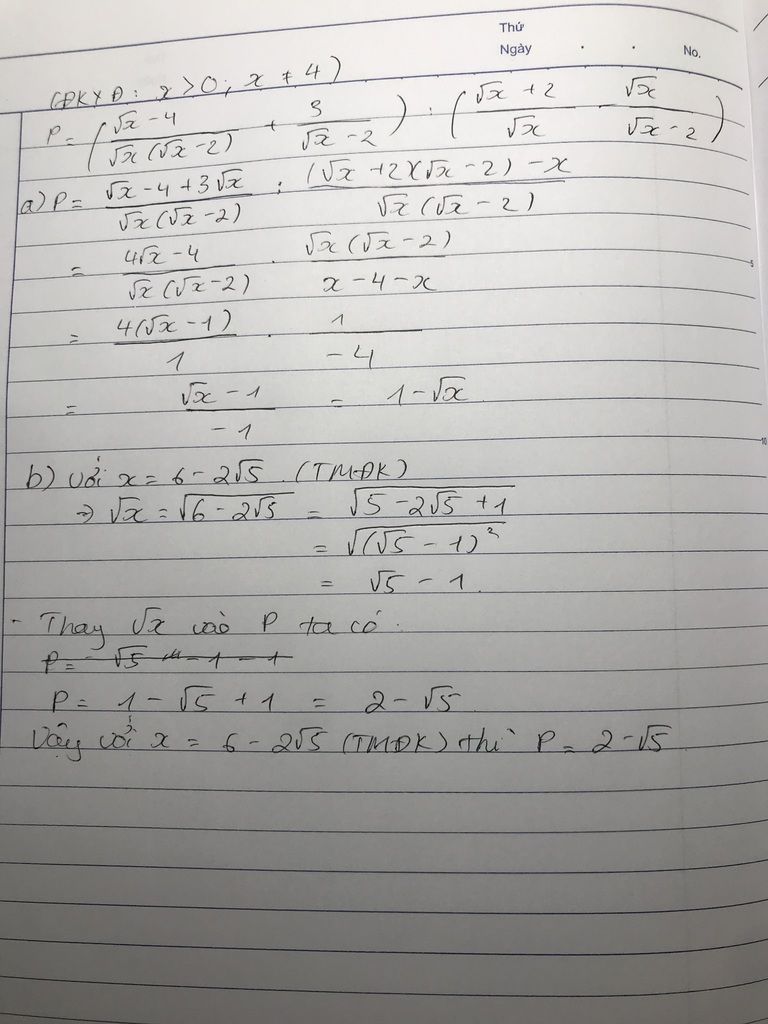 Thứ
Ngày . . No.
(ĐKXĐ: x > 0; x ≠ 4)
P = ( (√x - 4)/(√x(√x - 2)) + 3/(√x - 2) ) : ( (√x + 2)/√x - √x/(√x - 2) )
a) P = (√x - 4 + 3√x)/(√x(√x - 2)) : ((√x + 2)(√x - 2) - x)/(√x(√x - 2))
= (4√x - 4)/(√x(√x - 2)) . (√x(√x - 2))/(x - 4 - x)
5
= (4(√x - 1))/1 . 1/(-4)
= (√x - 1)/(-1) = 1 - √x
10
b) với x = 6 - 2√5 (TMĐK)
⇒ √x = √(6 - 2√5) = √(5 - 2√5 + 1)
= √((√5 - 1)²)
= √5 - 1.
- Thay √x vào P ta có:
P = √5 - 1 - 1
P = 1 - √5 + 1 = 2 - √5
Vậy với x = 6 - 2√5 (TMĐK) thì P = 2 - √5